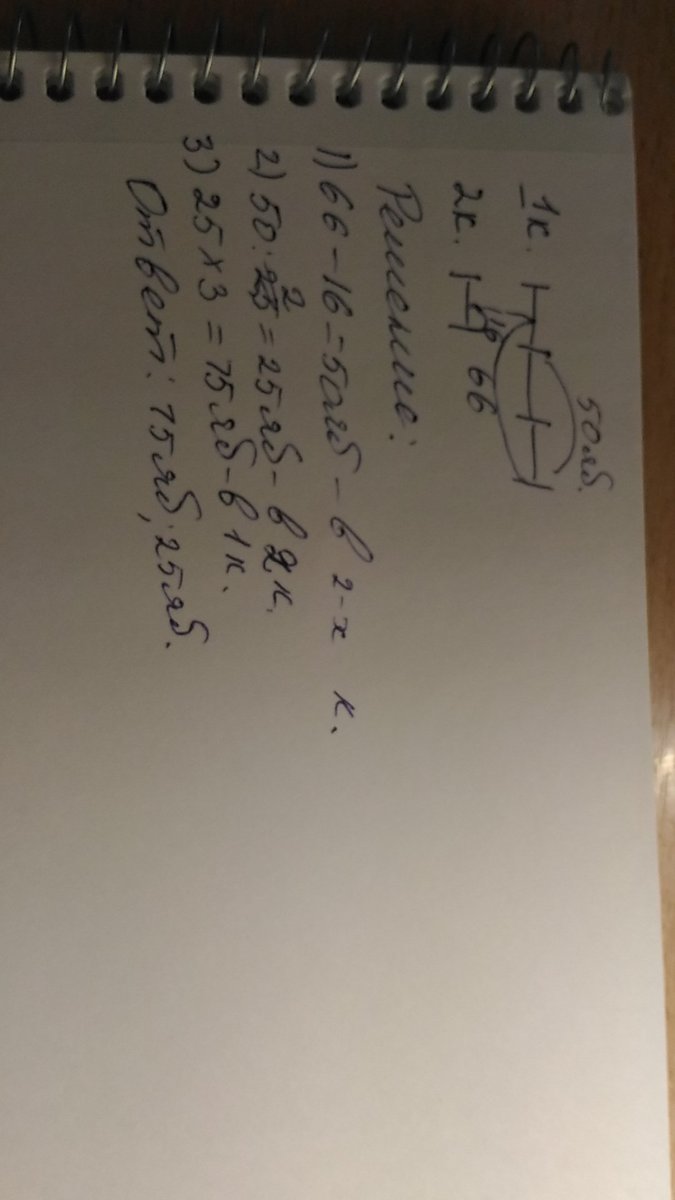 50 яб.
1к.
2к. 16 66
Решение:
1) 66-16=50яб - в 2-х к.
2) 50:2=25яб - в 2к.
3) 25 х 3 = 75яб - в 1к.
Ответ: 75яб; 25яб.